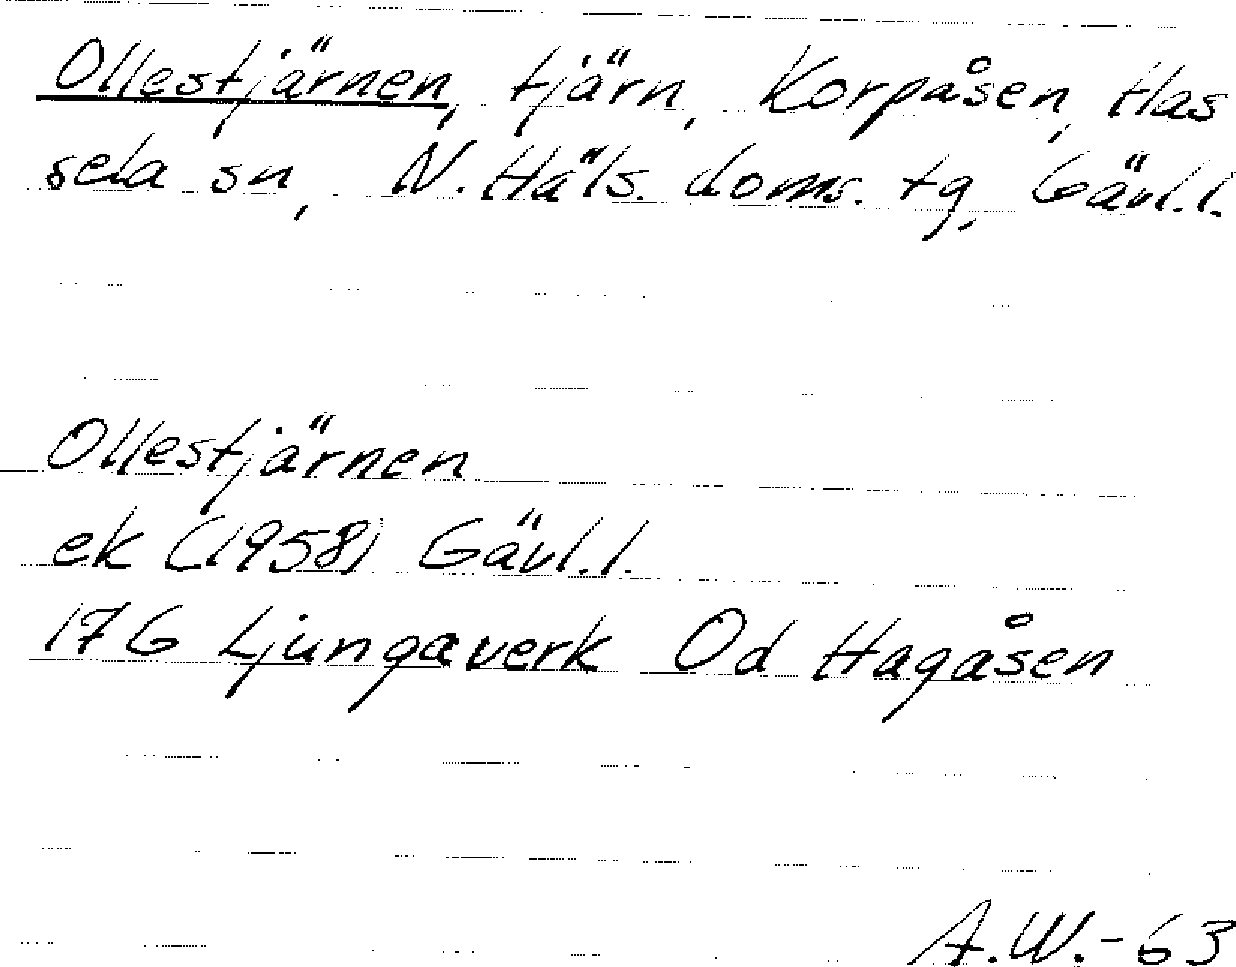 Ollestjärnen, tjärn, Korpåsen, Has
sela sn, N. Häls. doms. tg, Gävl.l.
Ollestjärnen
ek (1958) Gävl.l.
17G Ljungaverk Od Hagåsen
A.W.-63